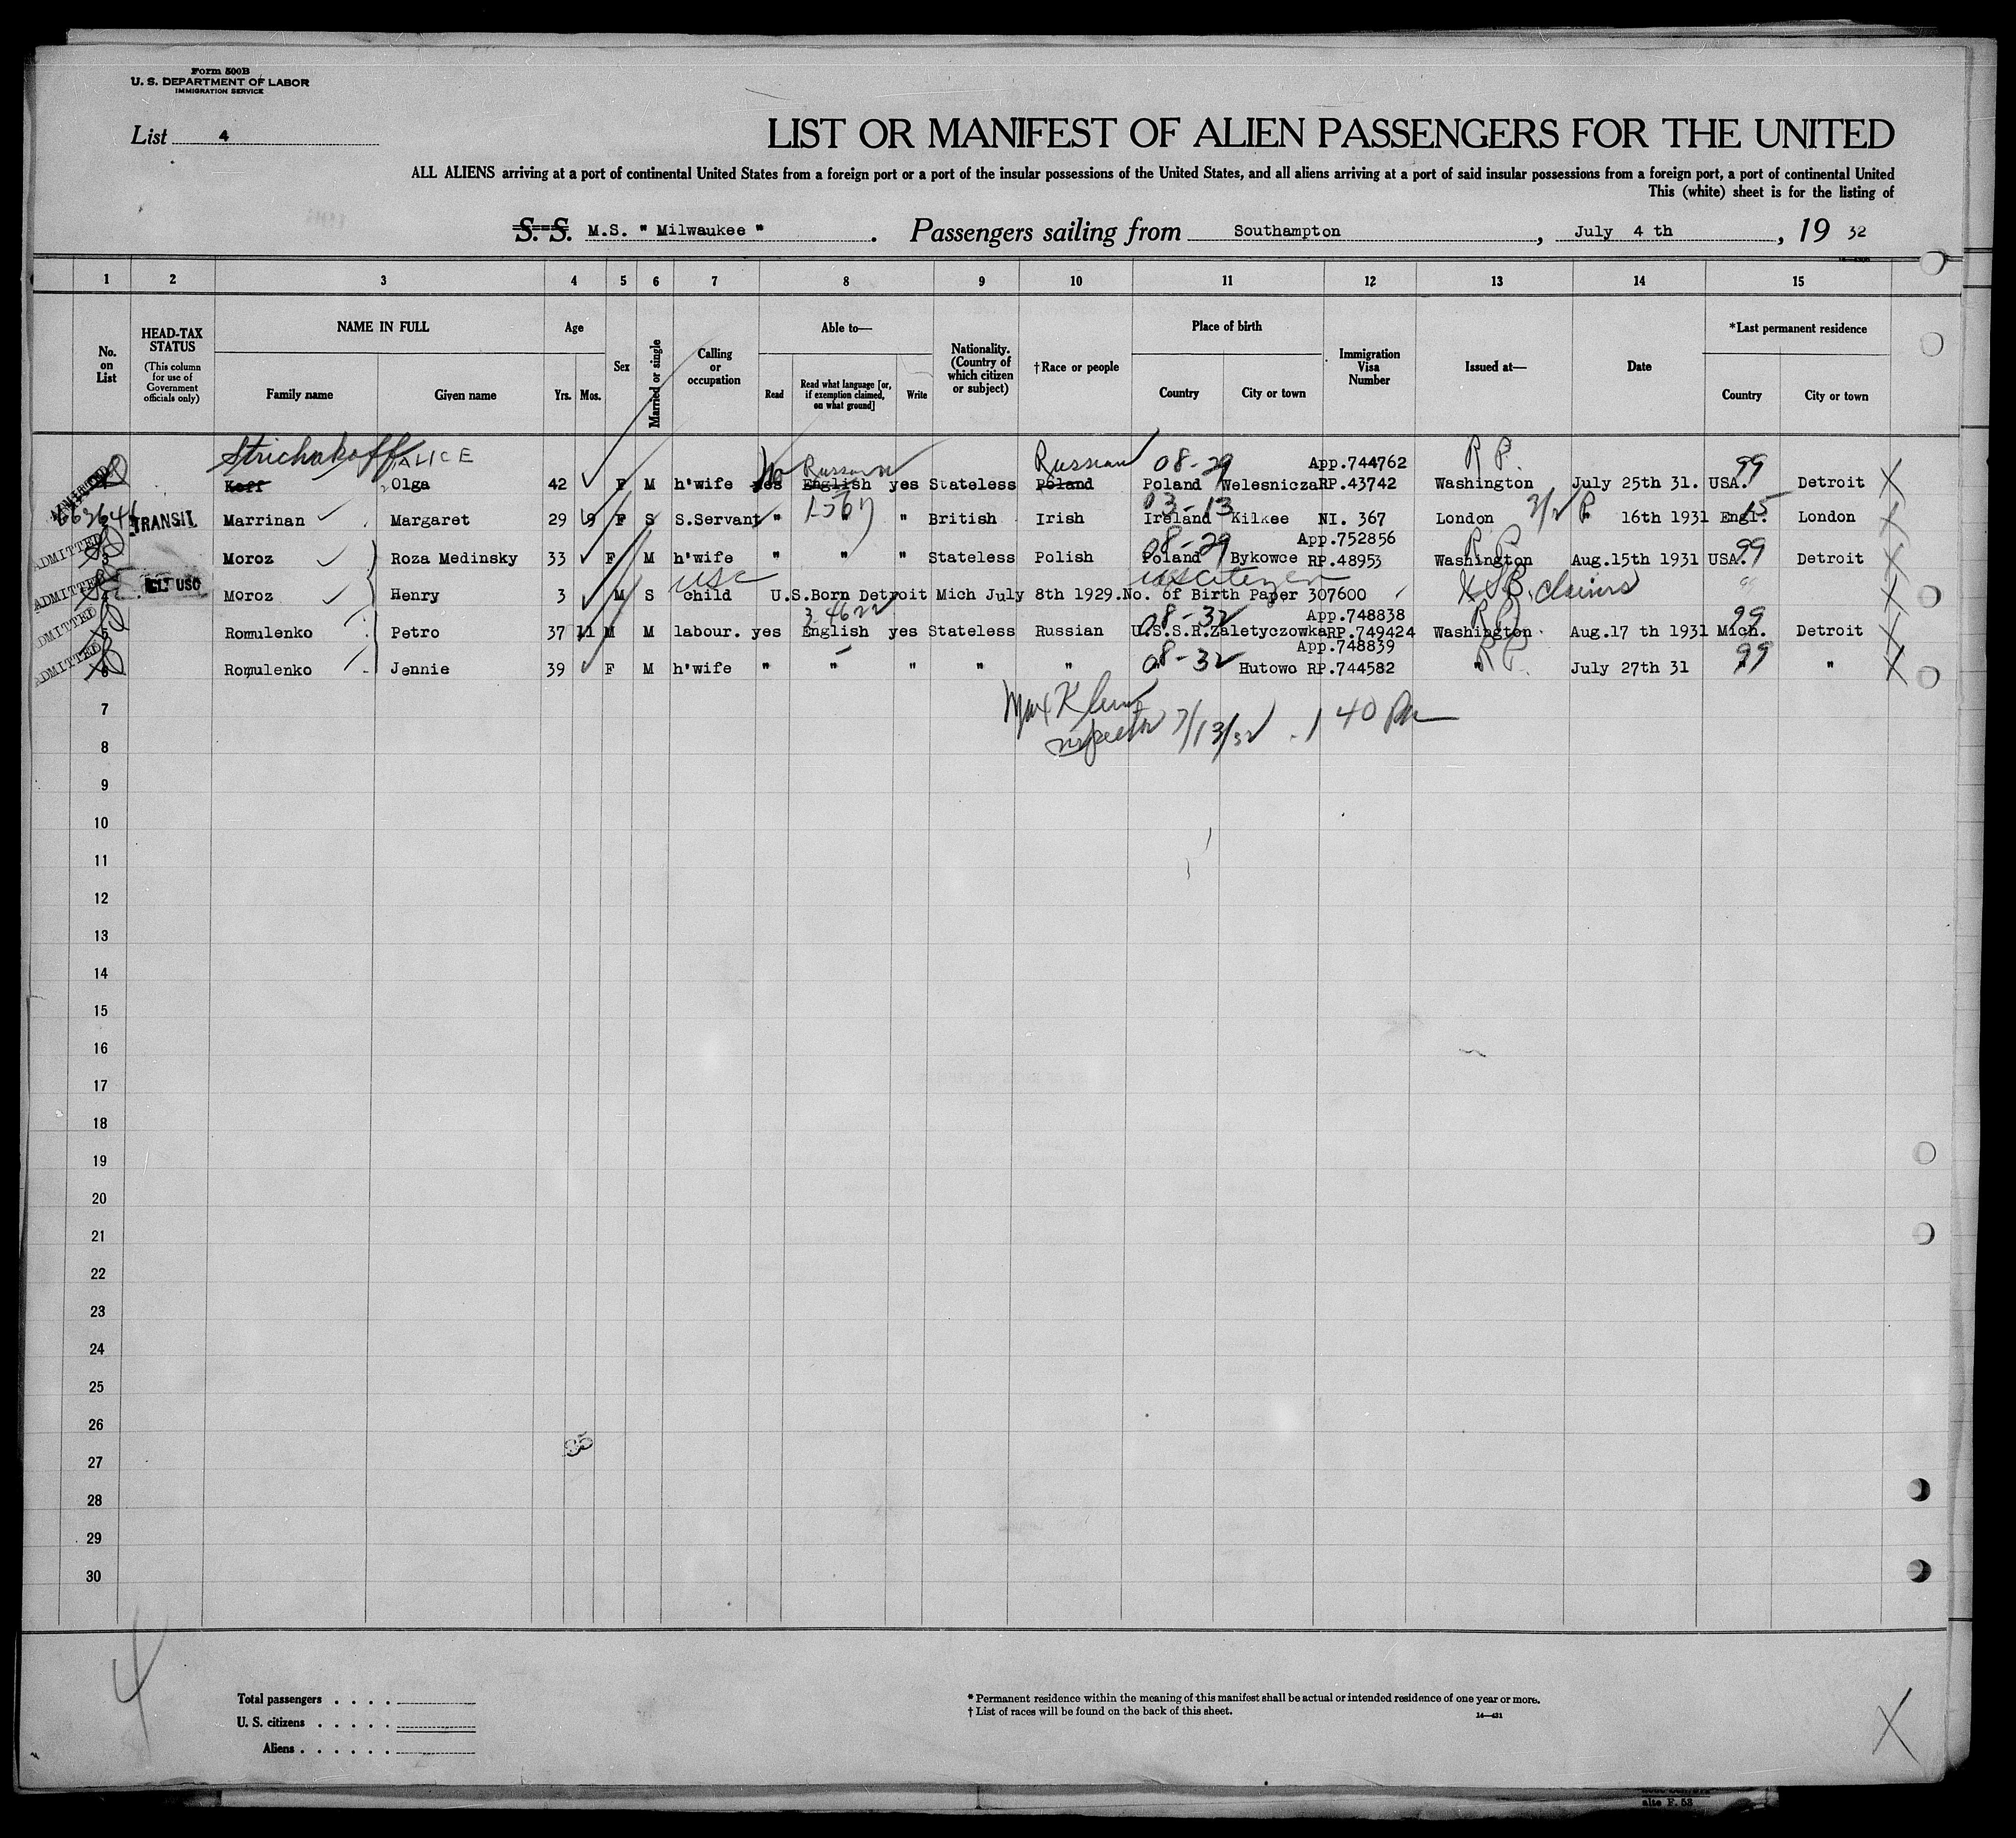 Form 500B
U. S. DEPARTMENT OF LABOR
IMMIGRATION SERVICE
List 4
LIST OR MANIFEST OF ALIEN PASSENGERS FOR THE UNITED
ALL ALIENS arriving at a port of continental United States from a foreign port or a port of the insular possessions of the United States, and all aliens arriving at a port of said insular possessions from a foreign port, a port of continental United
This (white) sheet is for the listing of
S. S. M.S. " Milwaukee " . Passengers sailing from Southampton , July 4 th , 19 32
1 2 3 4 5 6 7 8 9 10 11 12 13 14 15
No. on List
HEAD-TAX STATUS
(This column for use of Government officials only)
NAME IN FULL
Family name Given name
Age
Yrs. Mos.
Sex
Married or single
Calling or occupation
Able to—
Read
Read what language [or, if exemption claimed, on what ground]
Write
Nationality. (Country of which citizen or subject)
†Race or people
Place of birth
Country City or town
Immigration Visa Number
Issued at—
Date
*Last permanent residence
Country City or town
Strichakoff ALICE No Russian Russian 08-29 App.744762 R P. 99
ADMITTED Koff Olga 42 F M h'wife yes English yes Stateless Poland Poland Welesnicza RP.43742 Washington July 25th 31. USA. Detroit
1567 03-13 15
TRANSIT Marrinan Margaret 29 9 F S S.Servant " " " British Irish Ireland Kilkee NI. 367 London P. 16th 1931 Engl. London
08-29 App.752856 R P 99
ADMITTED 3 Moroz Roza Medinsky 33 F M h'wife " " " Stateless Polish Poland Bykowce RP.48953 Washington Aug.15th 1931 USA. Detroit
usc us citizen
ADMITTED 4 USC Moroz Henry 3 M S child U.S.Born Detroit Mich July 8th 1929.No. of Birth Paper 307600 claims
3 4622 08-32 App.748838 R P 99
ADMITTED 5 Romulenko Petro 37 11 M M labour. yes English yes Stateless Russian U.S.S.R. Zaletyczowka RP.749424 Washington Aug.17 th 1931 Mich. Detroit
08-32 App.748839 R P 99
ADMITTED 6 Romulenko Jennie 39 F M h'wife " " " " " Hutowo RP.744582 " July 27th 31 " "
7 Max Klein
8 Inspector 7/13/32 1 40 Pm
9
10
11
12
13
14
15
16
17
18
19
20
21
22
23
24
25
26
27
28
29
30
4
Total passengers . . . .
U. S. citizens . . . . .
Aliens . . . . . .
* Permanent residence within the meaning of this manifest shall be actual or intended residence of one year or more.
† List of races will be found on the back of this sheet.
14—431
X
alte F. 53